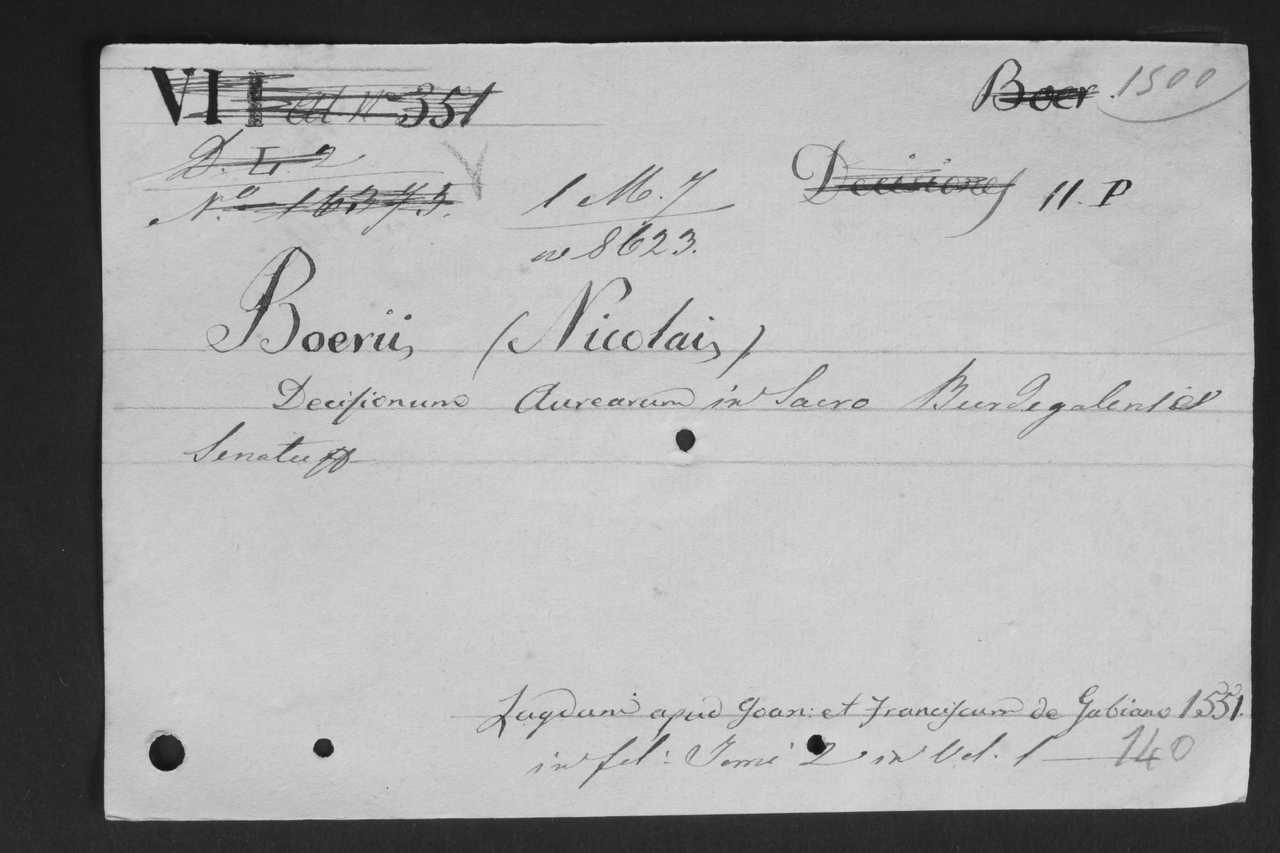 VII 351 Boer. 1500
D. L. 2
No 16373. 1 M. 7 Decisiones 11. P
no 8623.
Boerii, (Nicolai,)
Decisionum Aurearum in Sacro Burdegalensi
Senatu
Lugduni apud Joan: et Franciscum de Gabiano 1551.
in fol: Tomi 2 in Vol. 1 — 140